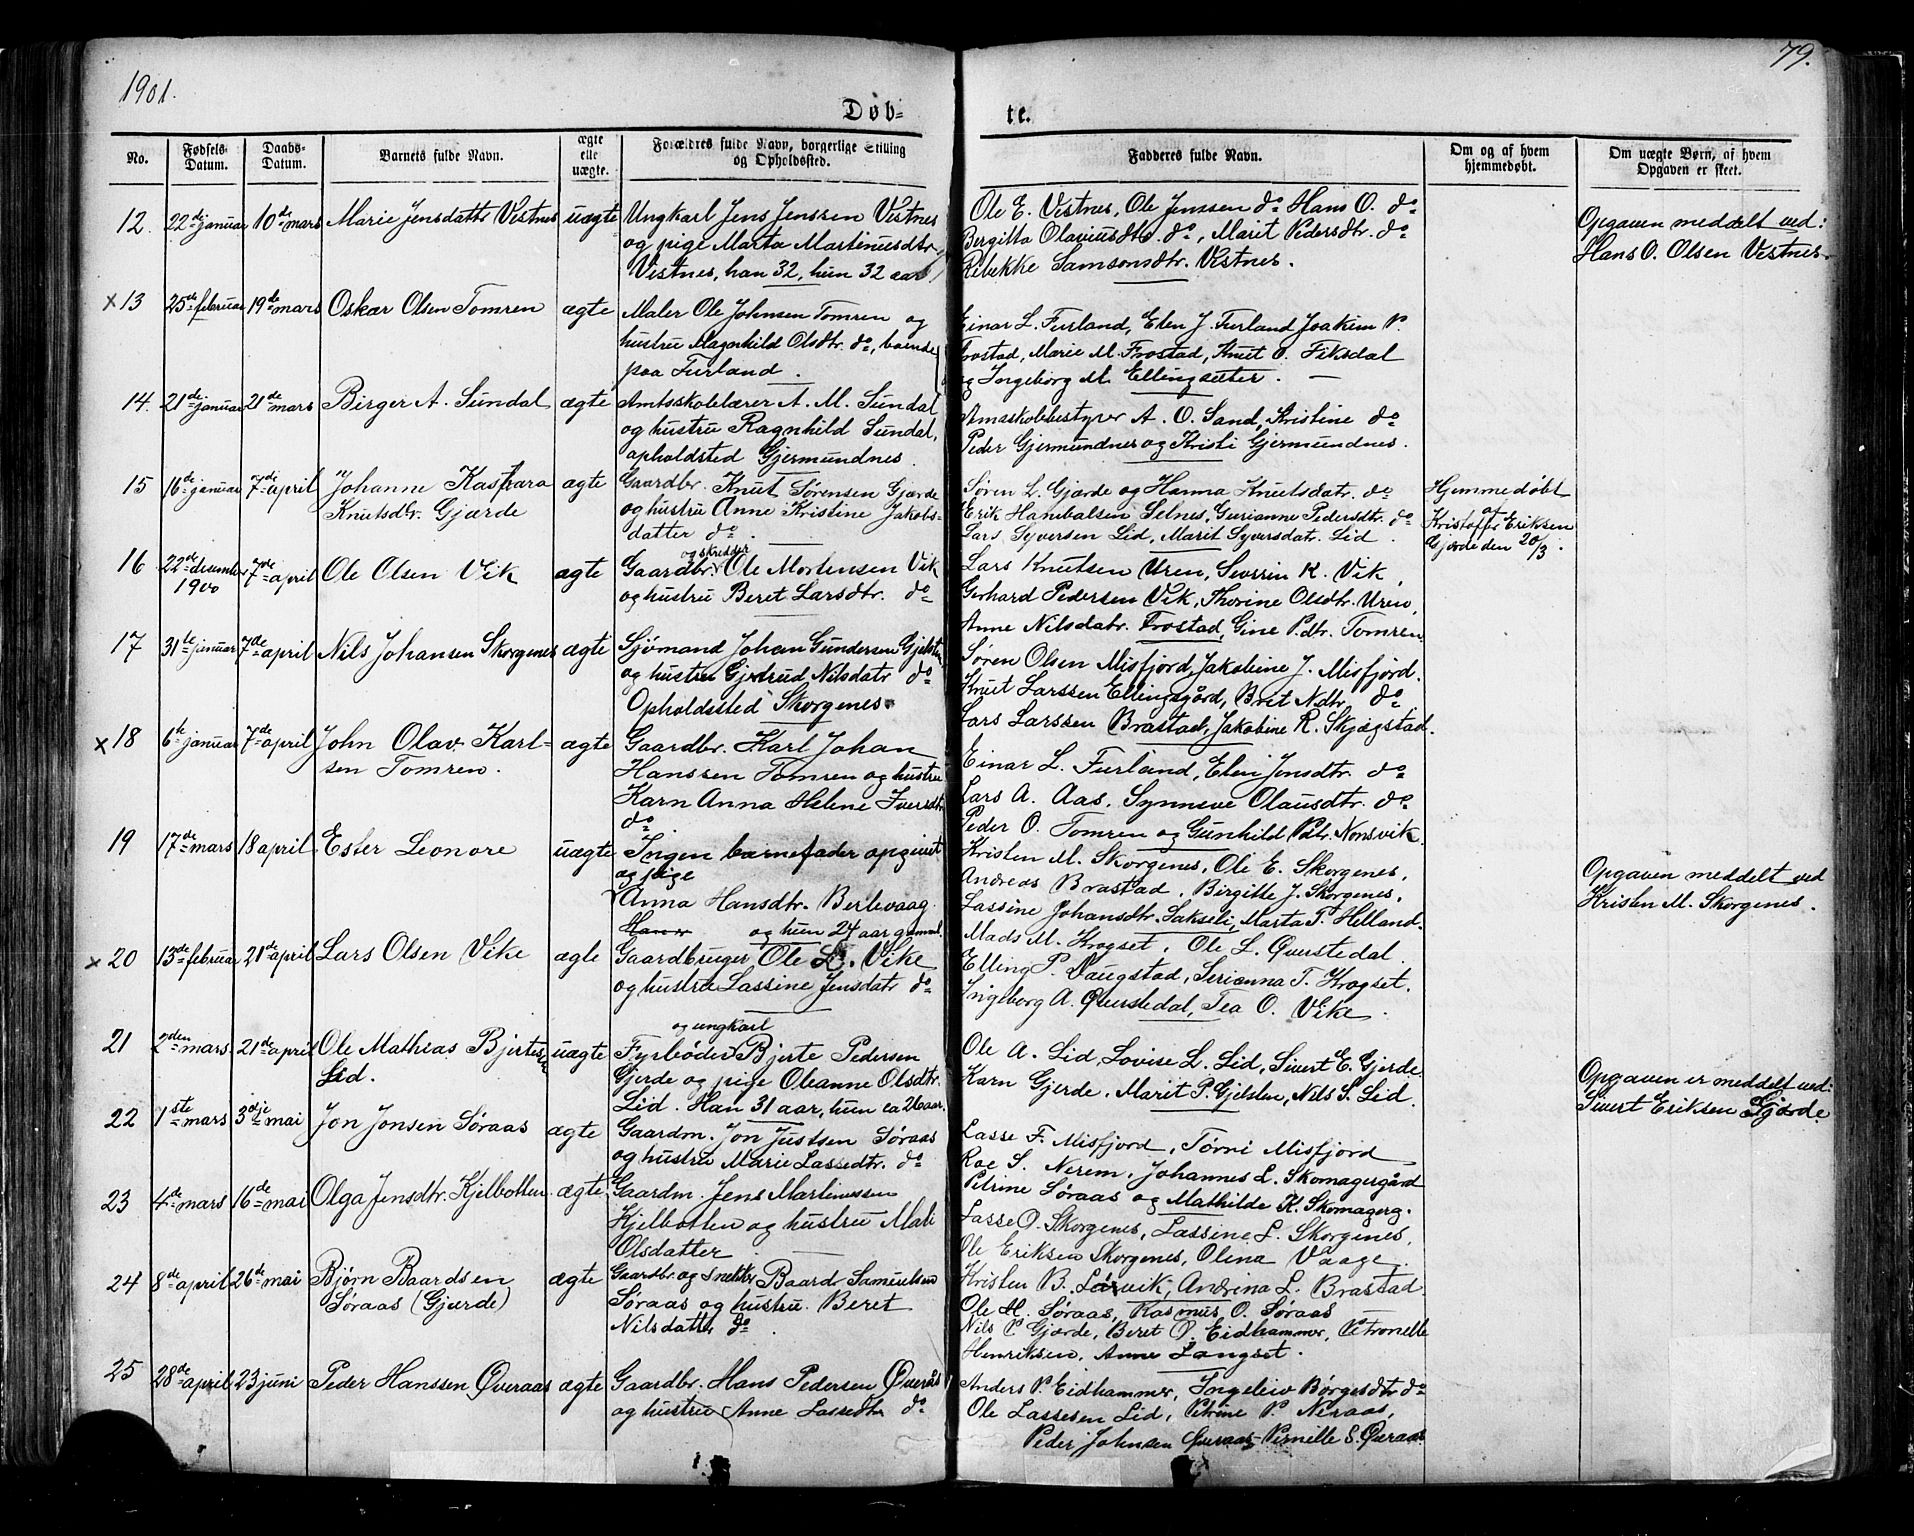 1901.
79.
Døb-
te.
No.
Fødsels-Datum.
Daabs-Datum.
Barnets fulde Navn.
ægte elle uægte.
Forældres fulde Navn, borgerlige Stilling og Opholdssted.
Fadderes fulde Navn.
Om og af hvem hjemmedøbt.
Om uægte Børn, af hvem Opgaven er skeet.
12. 22de januar 10de mars Marie Jensdattr Vestnes uægte Ungkarl Jens Jenssen Vestnes
og pige Marta Martinusdtr
Vestnes, han 32, hun 32 aar
Ole E. Vestnes, Ole Jenssen do Hans O. do
Bergitta Olaviusdtr. do, Marit Pedersdtr. do
Rebekke Samsonsdtr. Vestnes.
Opgaven meddelt ved:
Hans O. Olsen Vestnes.
x 13 25de februar 19de mars Oskar Olsen Tomren ægte Maler Ole Johnsen Tomren og
hustru Magnhild Olsdtr. do, boende
paa Furland.
Einar L. Furland, Elen J. Furland Joakim P.
Frostad, Marie M. Frostad, Knut O. Fiksdal
og Ingeborg M. Ellingsæter.
14. 21de januar 21de mars Birger A. Sundal ægte Amtsskolelærer A. M. Sundal
og hustru Ragnhild Sundal,
opholdsted Gjermundnes.
Amtsskolebestyrer A. O. Sand, Kristine do
Peder Gjermundnes og Kristi Gjermundnes.
15 16de januar 7de april Johanne Kaspara
Knutsdtr. Gjærde
ægte Gaardbr. Knut Sørensen Gjærde
og hustru Anne Kristine Jakobs-
datter do.
Søren L. Gjærde og Hanna Knutsdatr. do
Erik Hanibalsen Selnes, Gurianne Pedersdtr. do
Lars Syversen Lid, Marit Syversdat. Lid.
Hjemmedøbt
af
Kristofer Eriksen
Gjærde den 20/3.
16 22de desember 1900 7de april Ole Olsen Vik ægte Gaardbr. og skredder Ole Mortensen Vik
og hustru Beret Larsdtr. do
Lars Knutsen Uren, Severin K. Vik,
Gerhard Pedersen Vik, Thorine Olsdtr. Uren,
Anne Nilsdatr. Frostad, Gine P.dtr. Tomren
17 31te januar 7de april Nils Johansen Skorgenes ægte Sjømand Johan Gundersen Gjelsten
og hustru Gjertrud Nilsdatr do
Opholdssted Skorgenes.
Søren Olsen Misfjord, Jakobine J. Misfjord.
Knut Larssen Ellingsgård, Brit Ndtr. do
Lars Larssen Brastad, Jakobine R. Skjægstad.
x 18 6te januar 7de april John Olav Karl-
sen Tomren.
ægte Gaardbr. Karl Johan
Hanssen Tomren og hustru
Karn Anna Helene Iversdtr
do.
Einar L. Furland, Elen Jensdtr. do
Lars A. Aas. Synneve Olausdtr. do
Peder O. Tomren og Gunhild Pdtr. Nonsvik.
19 17de mars 18 april Ester Leonore uægte Ingen barnefader opgivet
og pige
Anna Hansdtr. Berlevaag.
og hun 24 aar gammel.
Kristen M. Skorgenes, Ole E. Skorgenes,
Andreas Brastad, Birgitte J. Skorgenes,
Lassine Johansdtr. Sakseli, Marta P. Helland.
Opgaven meddelt ved
Kristen M. Skorgenes.
x 20 13de februar 21de april Lars Olsen Vike ægte Gaardbruger Ole L. Vike
og hustru Lassine Jensdatr do
Mads M. Krogset, Ole L. Øverstedal.
Elling P. Vaugstad, Serianna T. Krogset.
Ingeborg A. Øverstedal, Tea O. Vike.
21 2den mars 21de april Ole Mathias Bjertesen
Lid.
uægte Fyrbøder og ungkarl Bjerte Pedersen
Gjerde og pige Oleanne Olsdtr.
Lid. Han 31 aar, hun ca 26 aar.
Ole A. Lid, Lovise L. Lid, Sivert E. Gjerde.
Karn Gjerde, Marit P. Gjelsten, Nils S. Lid.
Opgaven er meddelt ved:
Sivert Eriksen Gjærde.
22 1ste mars 3dje mai Jon Jonsen Søraas ægte Gaardm. Jon Justsen Søraas
og hustru Marie Lassedtr. do
Lasse F. Misfjord, Tørni Misfjord
Roe S. Nerem, Johannes L. Skomagergård
Petrine Søraas og Mathilde K. Skomagerg.
23 4de mars 16de mai Olga Jensdtr. Kjelbotten ægte Gaardm. Jens Martinussen
Kjelbotten og hustru Mali
Olsdatter.
Lasse O. Skorgenes, Lassine L. Skorgenes,
Ole Eriksen Skorgenes, Olina Vaage,
Kristen B. Lervik, Andrina L. Brastad
24 8de april 26de mai Bjørn Baardsen
Søraas (Gjærde)
ægte Gaardbr. og snekker Baard Samuelsen
Søraas og hustru Beret
Nilsdattr do.
Ole H. Søraas, Rasmus O. Søraas
Nils P. Gjærde, Beret O. Eidhammer, Petronelle
Henriksen, Anne Langset.
25 28de april 23 juni Peder Hanssen Øveraas ægte Gaardbr. Hans Pedersen Øverås
og hustru Anne Lassedtr do
Anders P. Eidhammer, Ingeleiv Børgesdtr do
Ole Lassesen Lid, Petrine P. Neraas,
Peder Johnsen Øveraas, Pernelle S. Øveraas